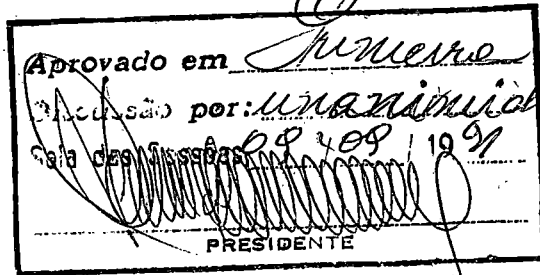 Aprovado em primeira
Discussão por: unanimid
Sala das Sessões 09 / 09 / 1991
PRESIDENTE